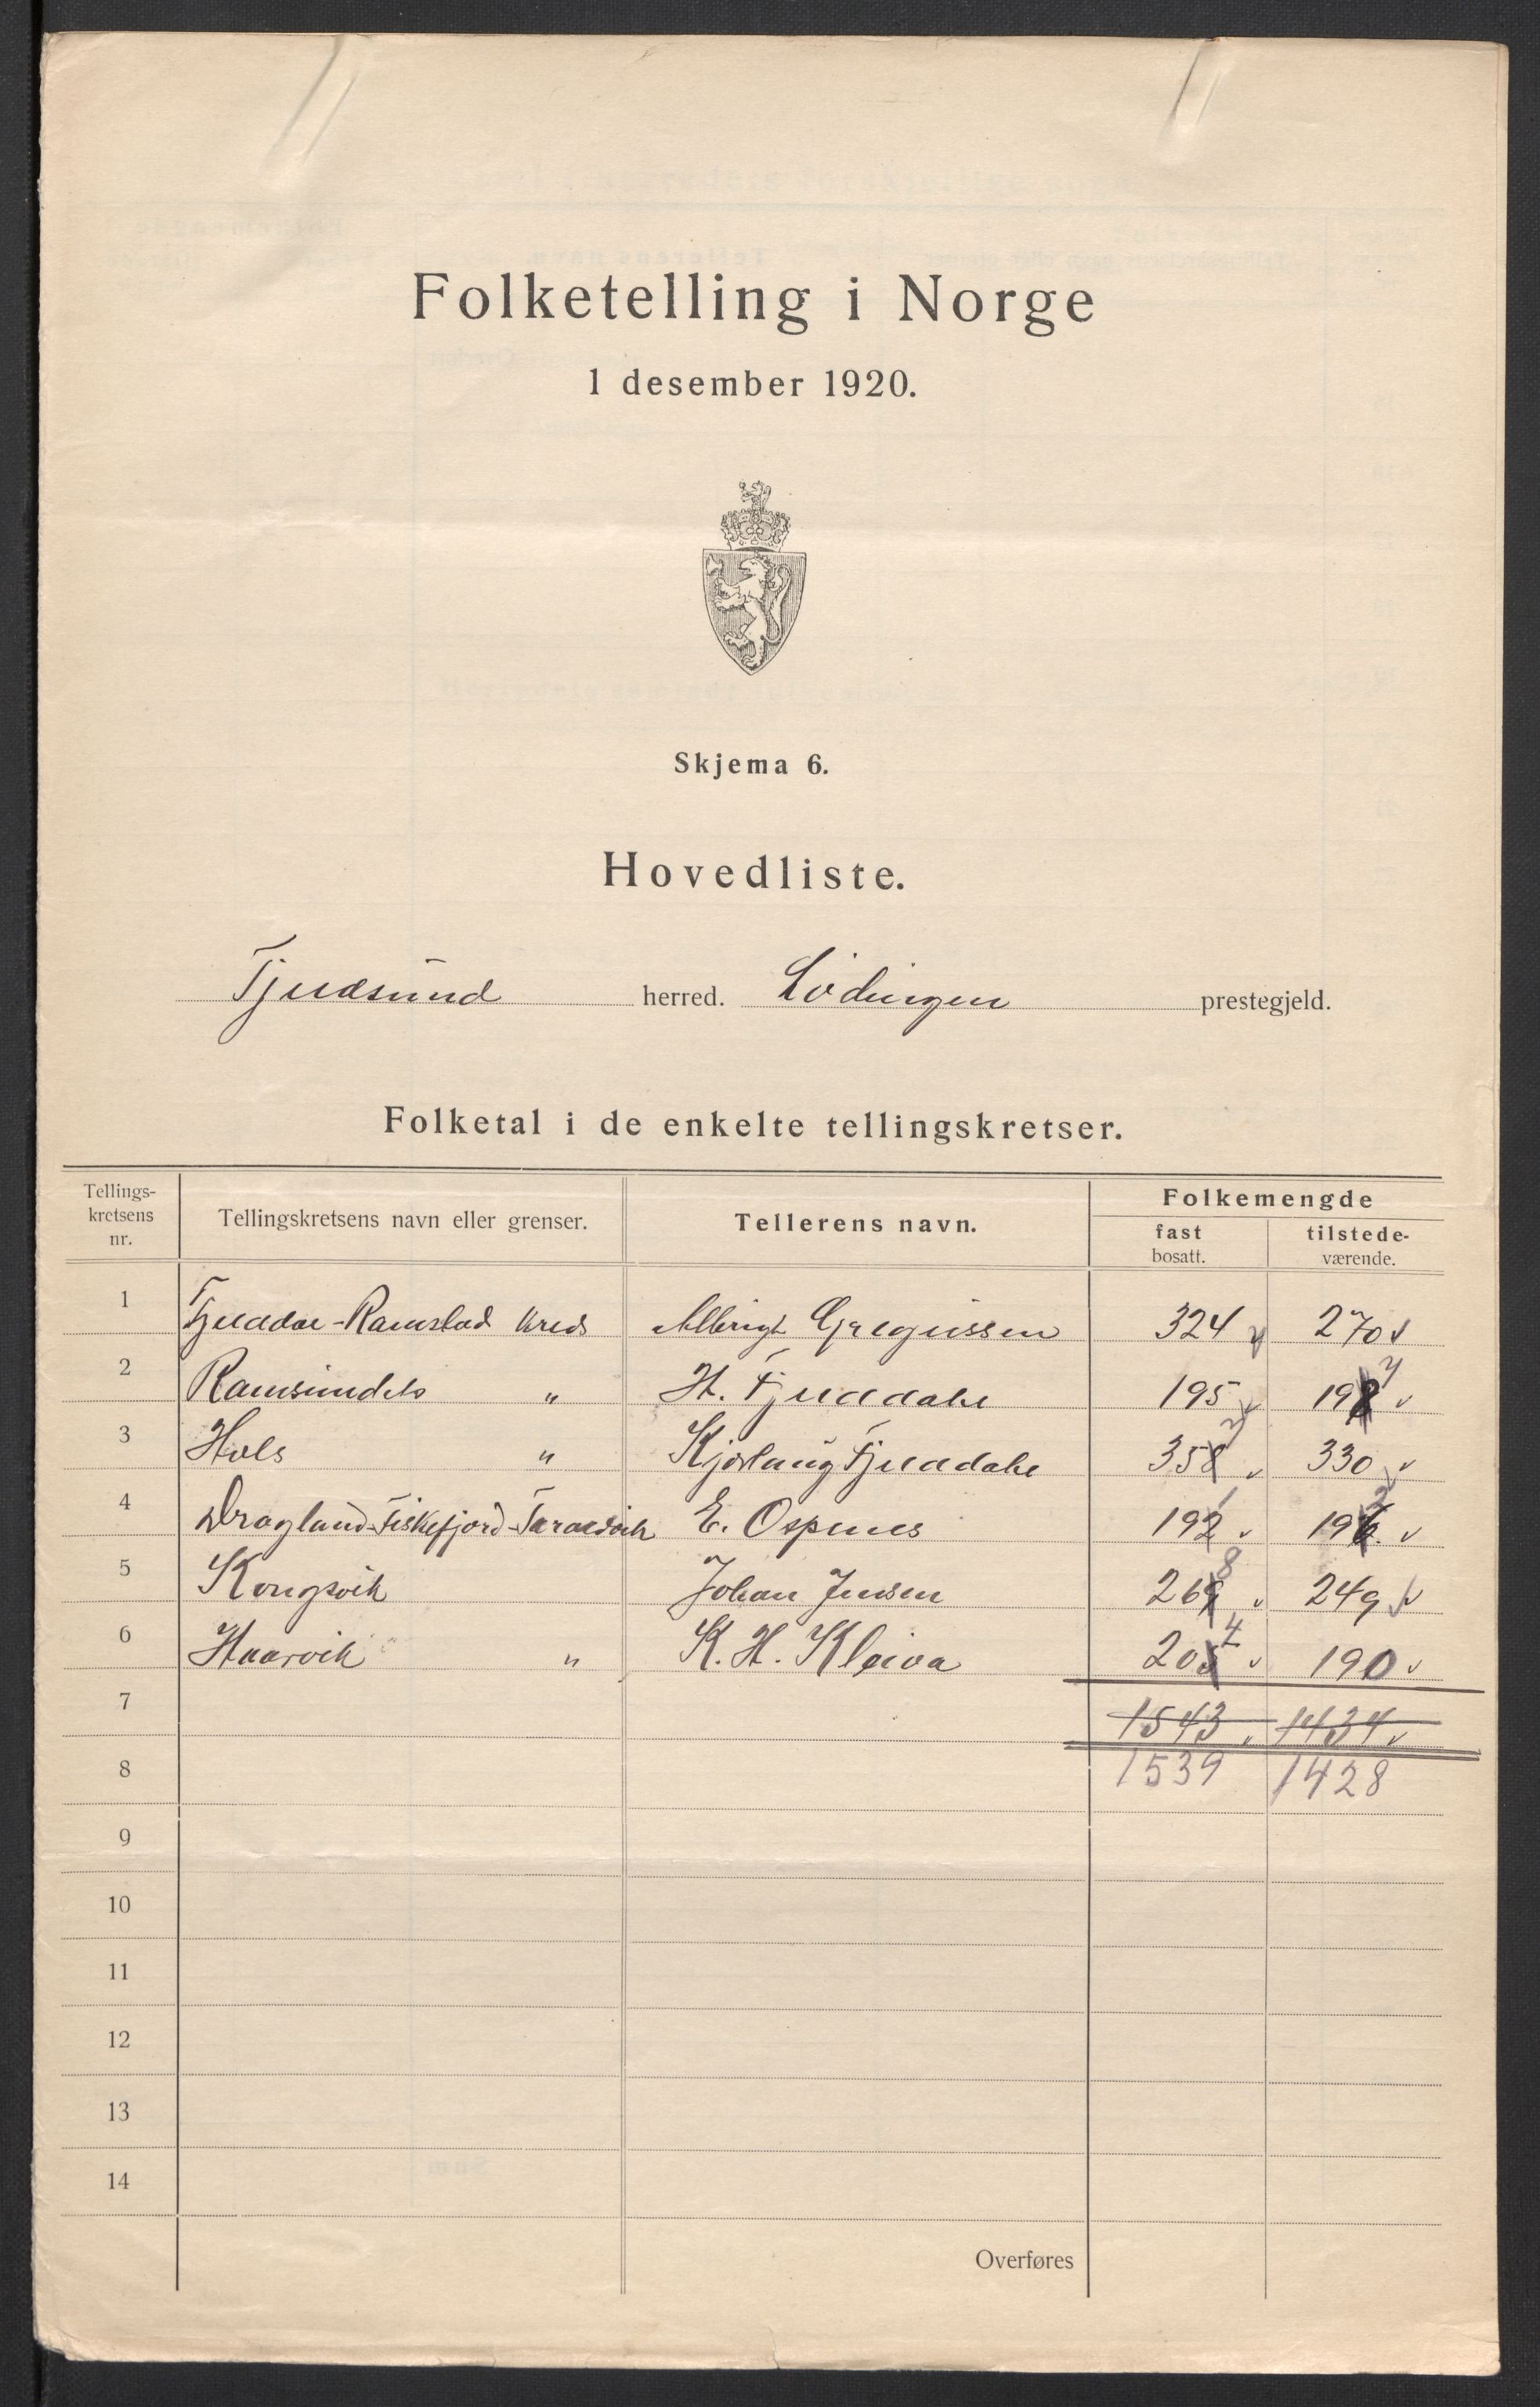 Folketelling i Norge
1 desember 1920.
Skjema 6.
Hovedliste.
Tjeldsund herred. Lödingen prestegjeld.
Folketal i de enkelte tellingskretser.
Tellings-kretsens nr. Tellingskretsens navn eller grenser. Tellerens navn. Folkemengde
fast bosatt. tilstede-værende.
1 Ramstad kreds 324 270
2 Ramsundets " H. Fjelldahl 195 198 7
3 Hols " Fjelldahl 358 7 330
4 Dragland-Fiskefjord- E. Ospenes 192 1 196 2
5 Kongsvik Johan Jensen 269 8 249
6 Haarvik " K. H. Kleiva 205 4 190
7 1543 1434
8 1539 1428
9
10
11
12
13
14
Overføres